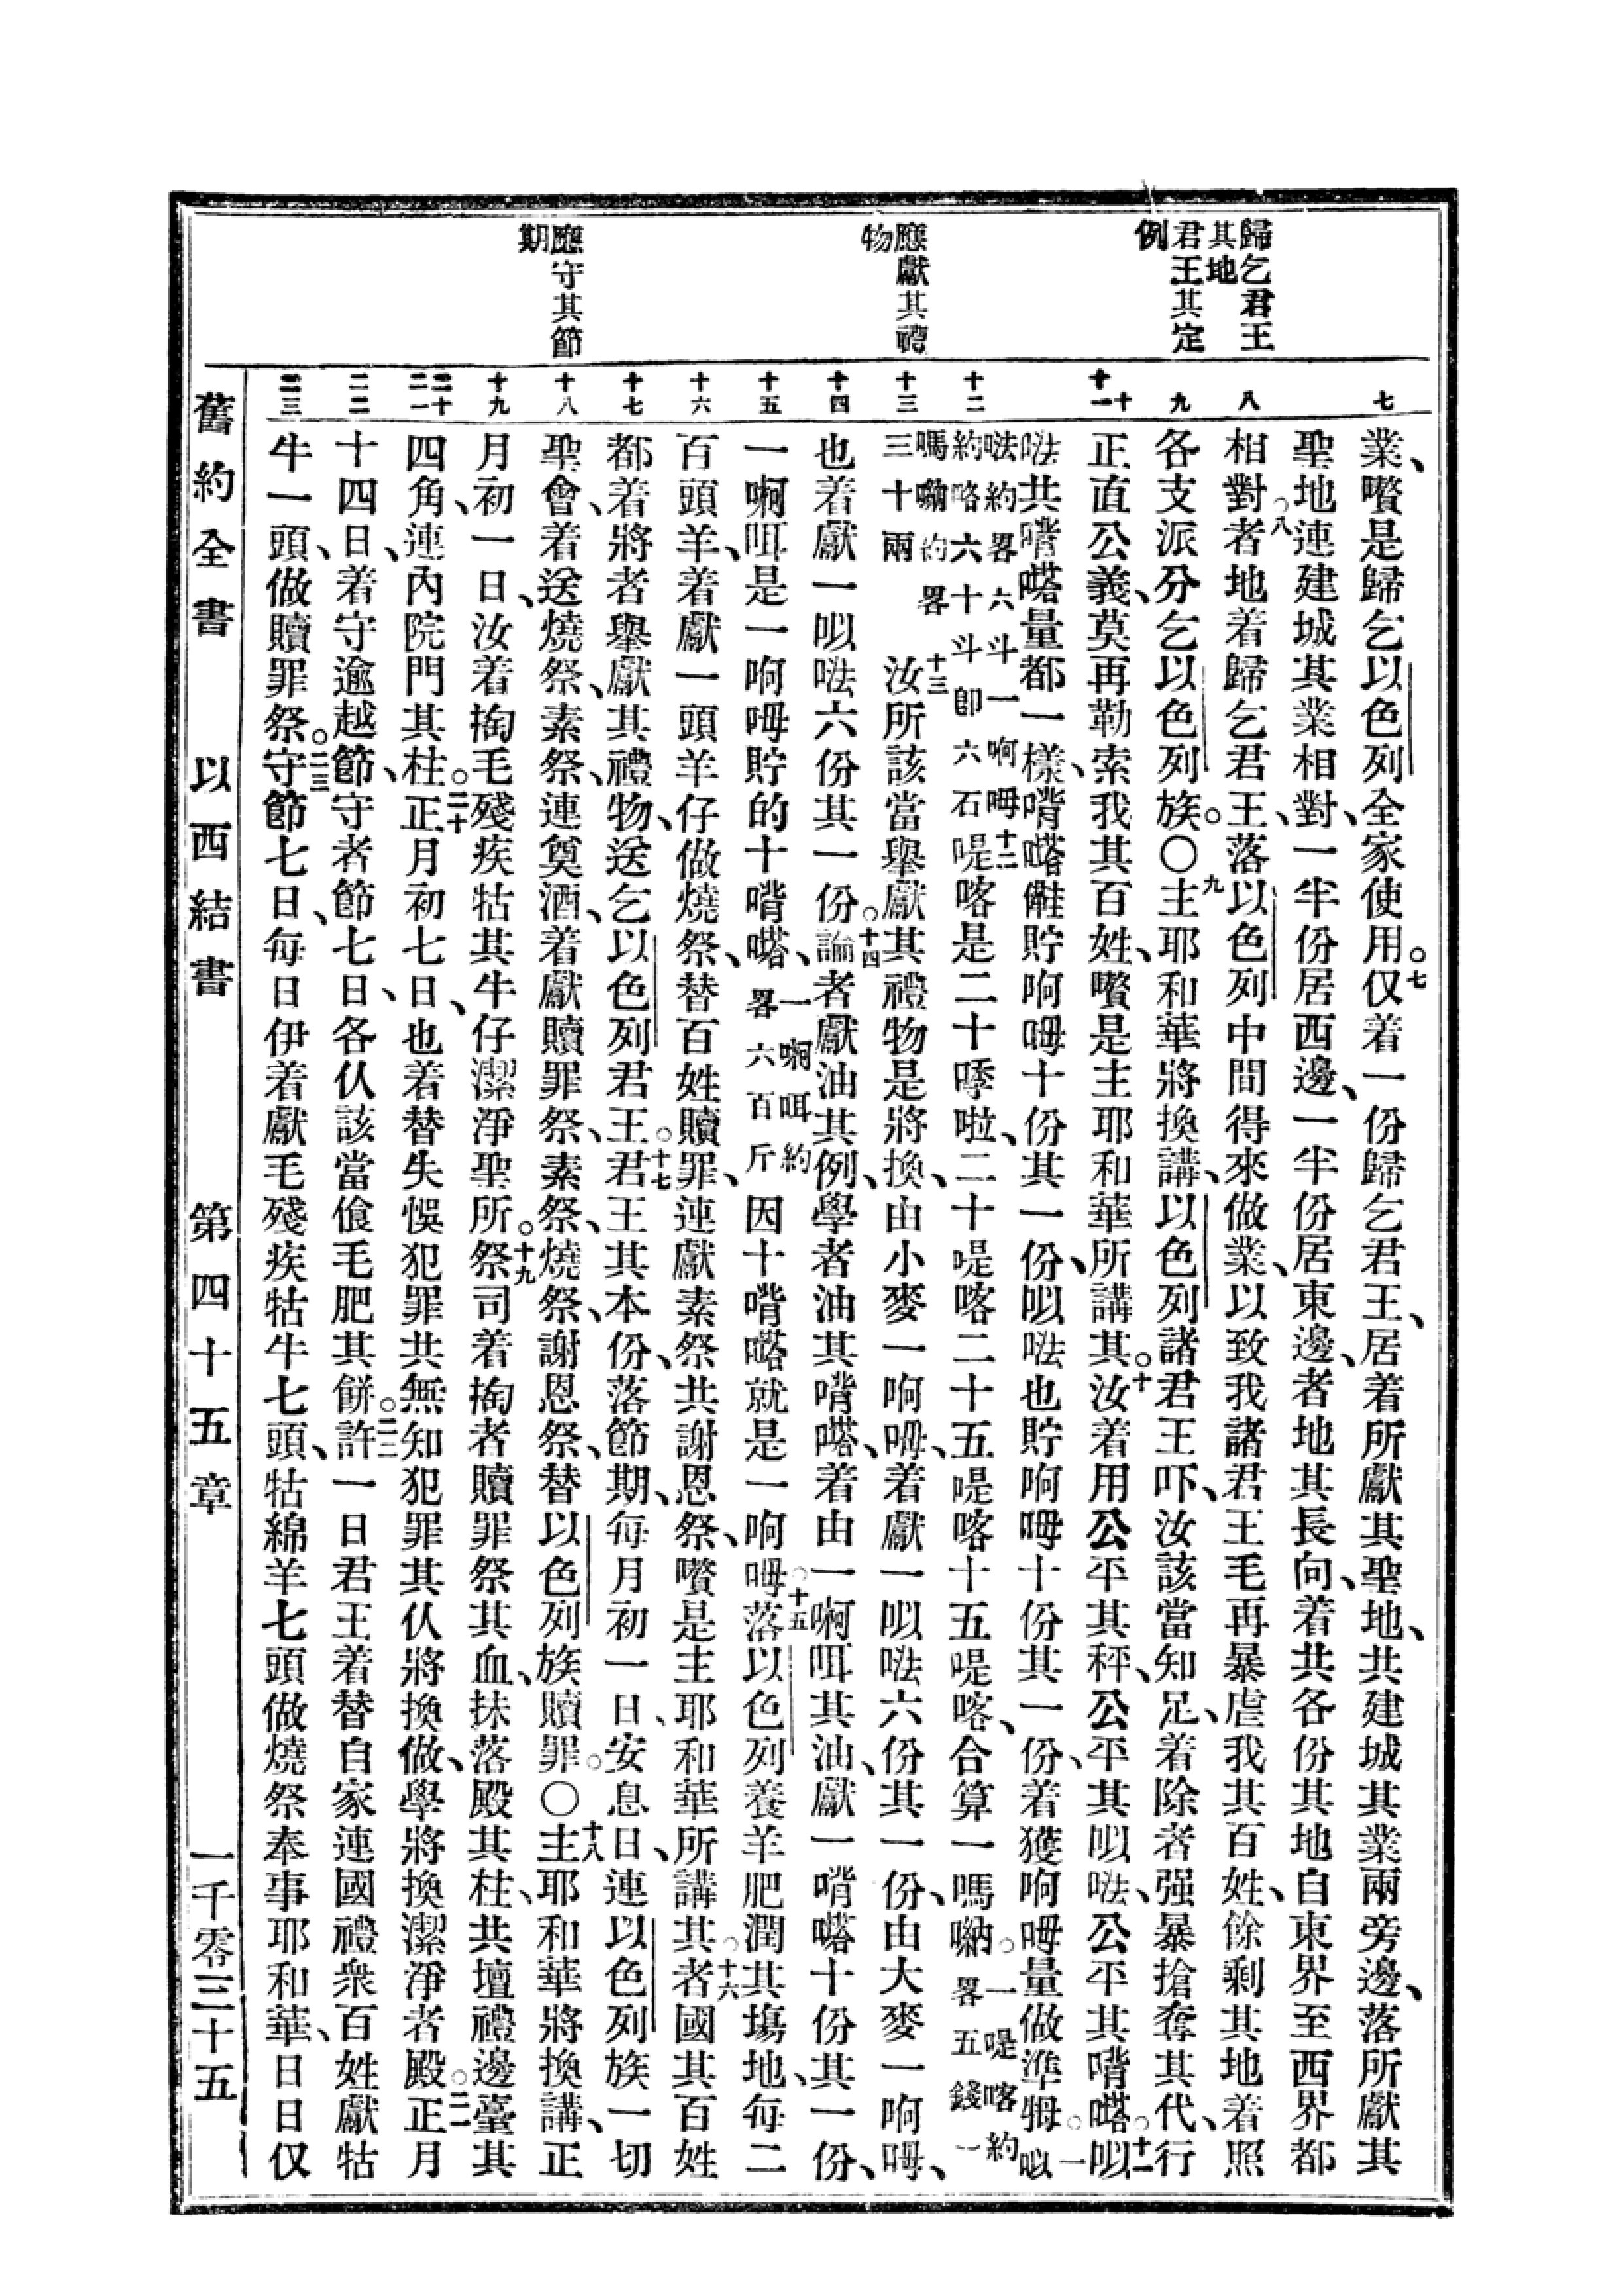 歸乞君王
其地
君王其定
例
應獻其禮
物
應守其節
期
七
八
九
十
十一
十二
十三
十四
十五
十六
十七
十八
十九
二十
二一
二二
二三
業、嚽是歸乞以色列全家使用。七仅着一份歸乞君王、居着所獻其聖地、共建城其業兩旁邊、落所獻其
聖地連建城其業相對、一半份居西邊、一半份居東邊、者地其長向、着共各份其地自東界至西界都
相對。八者地着歸乞君王、落以色列中間得來做業、以致我諸君王毛再暴虐我其百姓、餘剩其地着照
各支派分乞以色列族。〇九主耶和華將換講、以色列諸君王吓、汝該當知足、着除者强暴搶奪其代、行
正直公義、莫再勒索我其百姓、嚽是主耶和華所講其。十汝着用公平其秤、公平其㕥㗾、公平其嘨㗳。十一㕥
㗾共嘨㗳量都一樣、嘨㗳儺貯啊呣十份其一份、㕥㗾也貯啊呣十份其一份、着獲啊呣量做準㧻。一㕥
㗾約畧六斗一啊呣
約略六十斗即六石
十二㖷喀是二十㖀啦、二十㖷喀二十五㖷喀十五㖷喀、合算一嗎㘔。一㖷喀約
畧五錢一
嗎㘔約畧
三十兩
十三汝所該當舉獻其禮物是將換、由小麥一啊呣、着獻一㕥㗾六份其一份、由大麥一啊呣、
也着獻一㕥㗾六份其一份。十四論者獻油其例、學者油其嘨㗳、着由一㖠咡其油、獻一嘨㗳十份其一份、
一㖠咡是一啊呣貯的十嘨㗳、一㖠咡約
畧六百斤
因十嘨㗳就是一啊呣。十五落以色列養羊肥潤其塲地、每二
百頭羊、着獻一頭羊仔做燒祭、替百姓贖罪、連獻素祭共謝恩祭、嚽是主耶和華所講其。十六者國其百姓
都着將者舉獻其禮物、送乞以色列君王。十七君王其本份、落節期、每月初一日、安息日、連以色列族一切
聖會、着送燒祭、素祭、連奠酒、着獻贖罪祭、素祭、燒祭、謝恩祭、替以色列族贖罪。〇十八主耶和華將換講、正
月初一日、汝着掏毛殘疾牯其牛仔潔淨聖所。十九祭司着掏者贖罪祭其血、抹落殿其柱、共壇禮邊臺其
四角、連內院門其柱。二十正月初七日、也着替失悞犯罪共無知犯罪其仈將換做、學將換潔淨者殿。二一正月
十四日、着守逾越節、守者節七日、各仈該當飡毛肥其餅。二二許一日君王着替自家連國禮衆百姓獻牯
牛一頭、做贖罪祭。二三守節七日、每日伊着獻毛殘疾牯牛七頭、牯綿羊七頭做燒祭奉事耶和華、日日仅
舊約全書 以西結書 第四十五章 一千零三十五